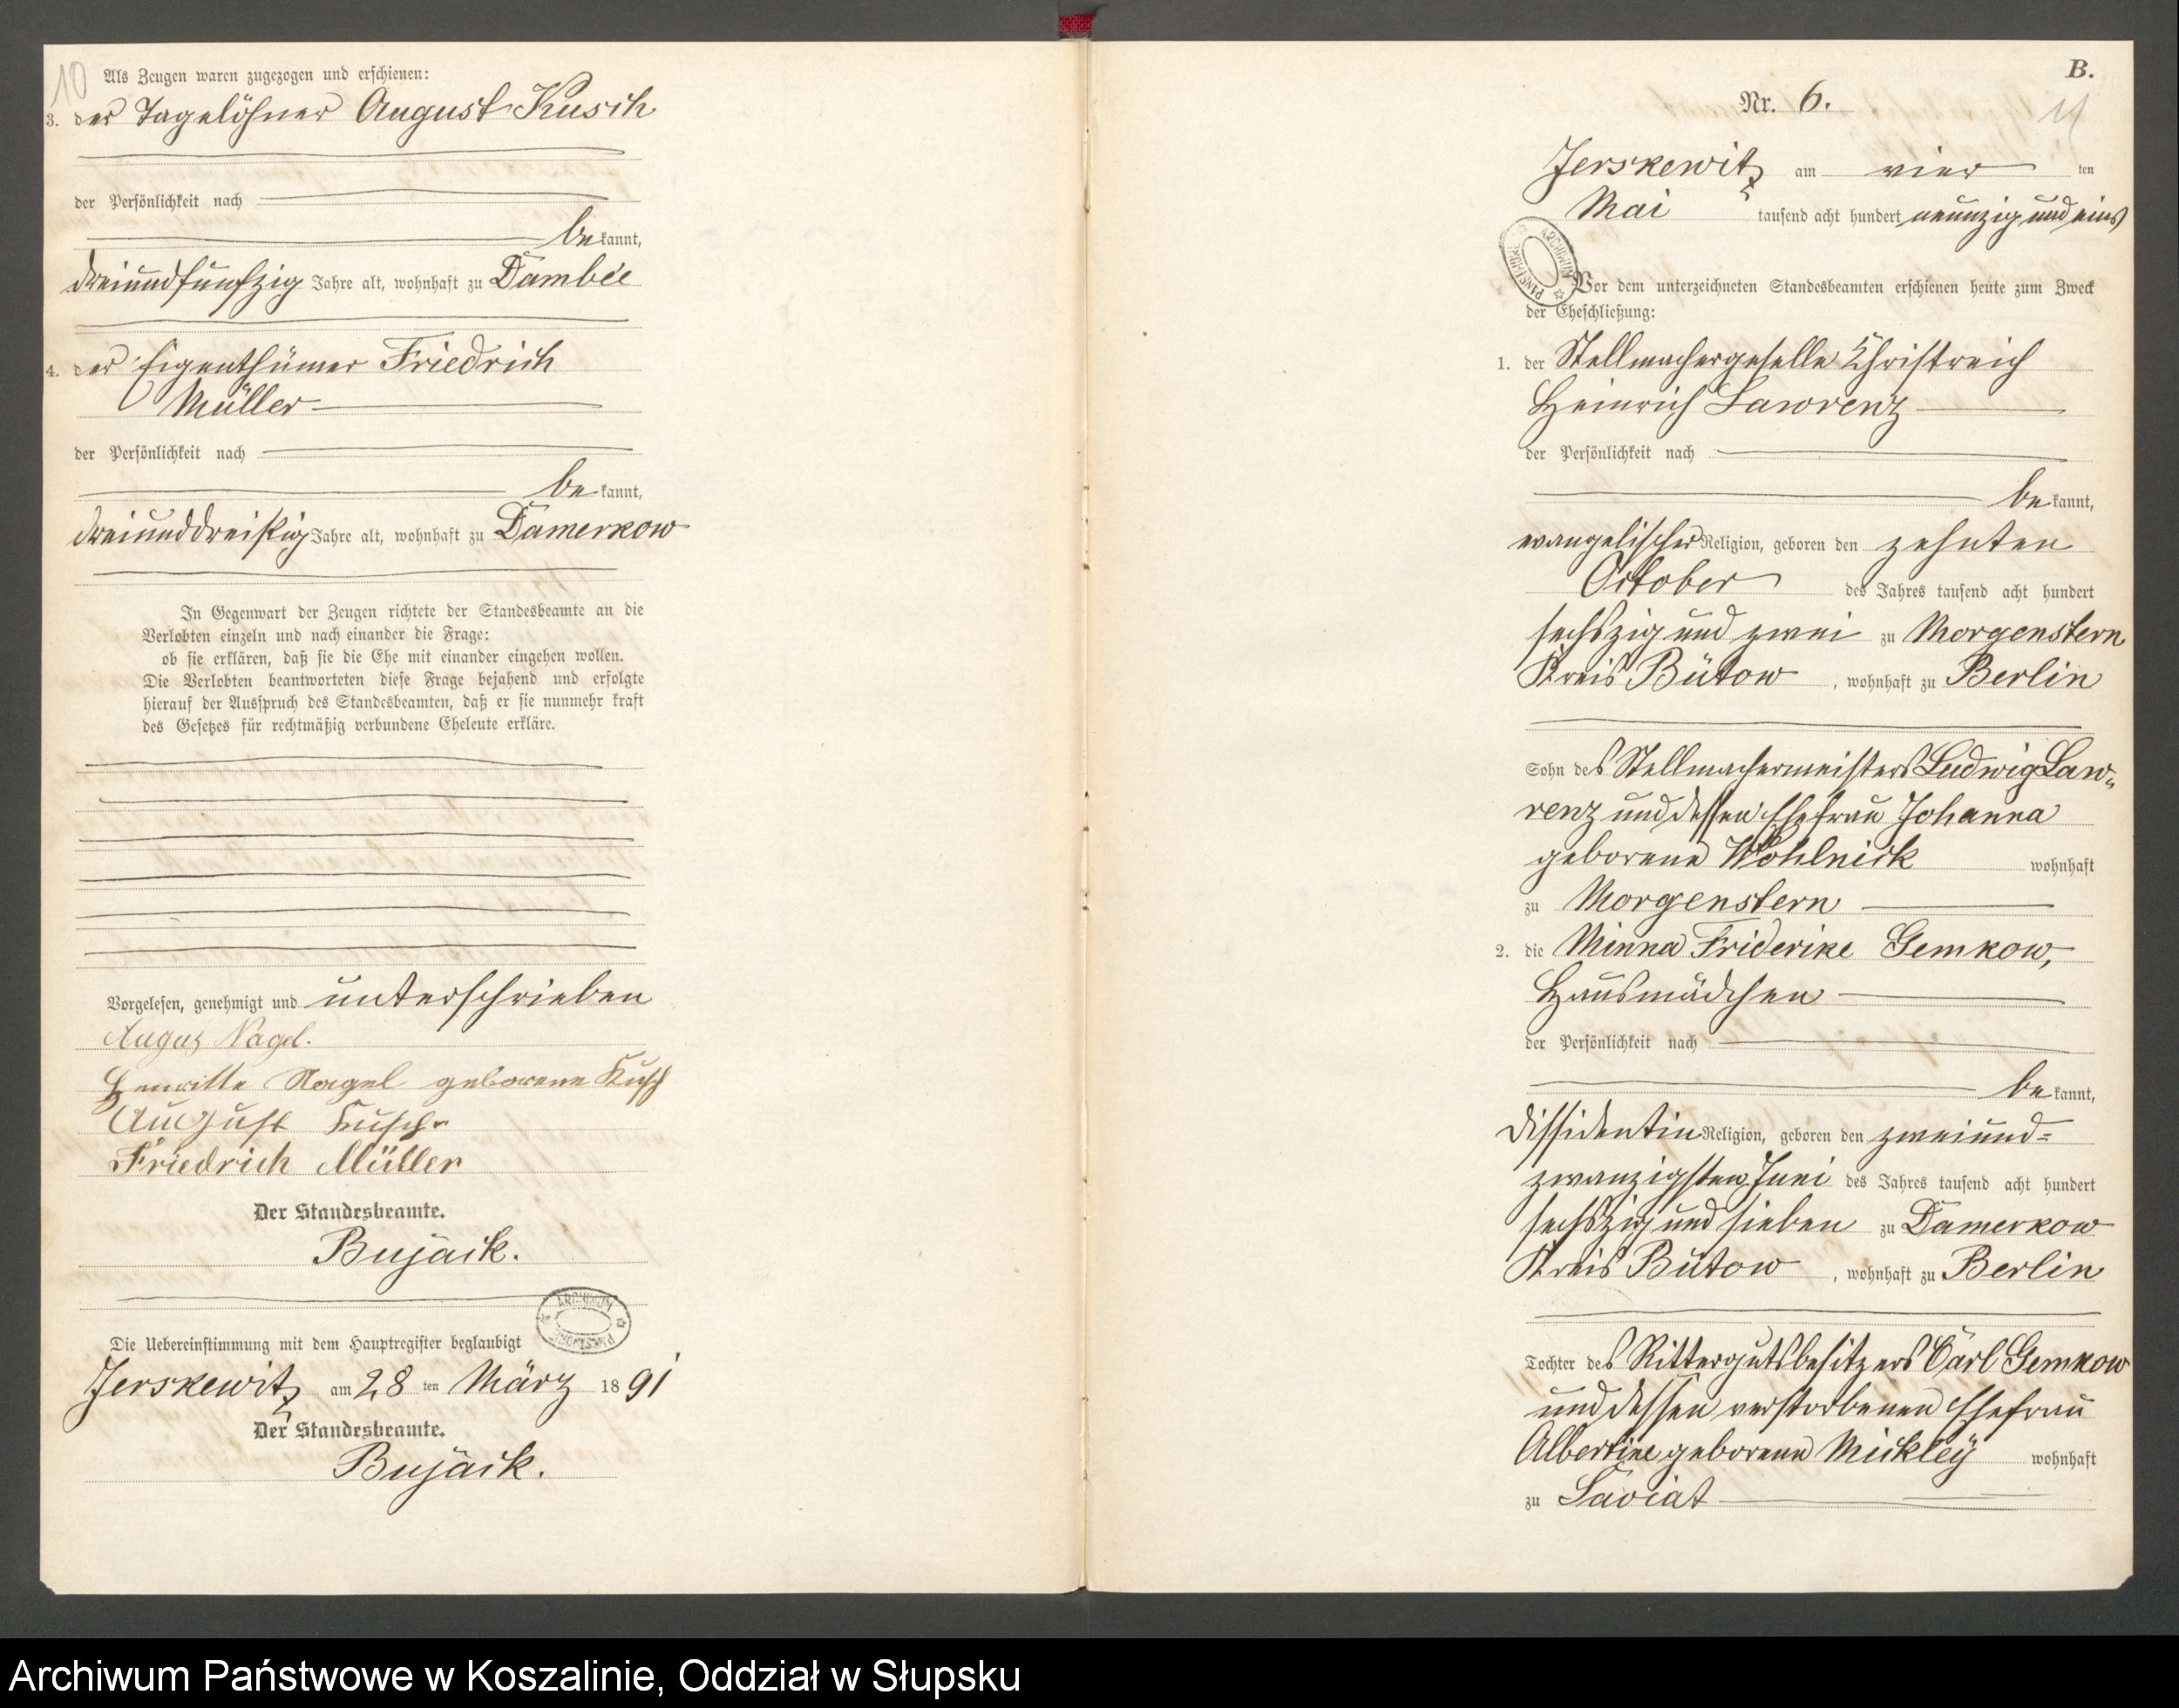 10
Als Zeugen waren zugezogen und erschienen:
3. der Tagelöhner August Kusch
der Persönlichkeit nach
bekannt,
dreiundfünfzig Jahre alt, wohnhaft zu Dambee
4. der Eigenthümer Friedrich
Müller
der Persönlichkeit nach
bekannt,
dreiunddreißig Jahre alt, wohnhaft zu Damerkow
In Gegenwart der Zeugen richtete der Standesbeamte an die
Verlobten einzeln und nach einander die Frage:
ob sie erklären, daß sie die Ehe mit einander eingehen wollen.
Die Verlobten beantworteten diese Frage bejahend und erfolgte
hierauf der Ausspruch des Standesbeamten, daß er sie nunmehr kraft
des Gesetzes für rechtmäßig verbundene Eheleute erkläre.
Vorgelesen, genehmigt und unterschrieben
Nagel.
Nagel geborene Kusch
August Kusch
Friedrich Müller
Der Standesbeamte.
Bujack.
ARCHIWUM PAŃSTWOWE
Die Uebereinstimmung mit dem Hauptregister beglaubigt
Jerskewitz am 28 ten März 1891
Der Standesbeamte.
Bujack.
B.
Nr. 6.
11
Jerskewitz am vier ten
Mai tausend acht hundert neunzig und eins
ARCHIWUM PAŃSTWOWE
Vor dem unterzeichneten Standesbeamten erschienen heute zum Zweck
der Eheschließung:
1. der Stellmachergeselle Christreich
Heinrich Lawrenz
der Persönlichkeit nach
bekannt,
evangelischer Religion, geboren den zehnten
October des Jahres tausend acht hundert
sechszig und zwei zu Morgenstern
Kreis Bütow, wohnhaft zu Berlin
Sohn des Stellmachermeisters Ludwig Law=
renz und dessen Ehefrau Johanna
geborene Wohlnick wohnhaft
zu Morgenstern
2. die Minna Friderike Gemkow,
Hausmädchen
der Persönlichkeit nach
bekannt,
Dissidentin Religion, geboren den zweiund=
zwanzigsten Juni des Jahres tausend acht hundert
sechszig und sieben zu Damerkow
Kreis Bütow, wohnhaft zu Berlin
Tochter des Rittergutsbesitzers Carl Gemkow
und dessen verstorbenen Ehefrau
Albertine geborene Mickley wohnhaft
zu Saviat
Archiwum Państwowe w Koszalinie, Oddział w Słupsku